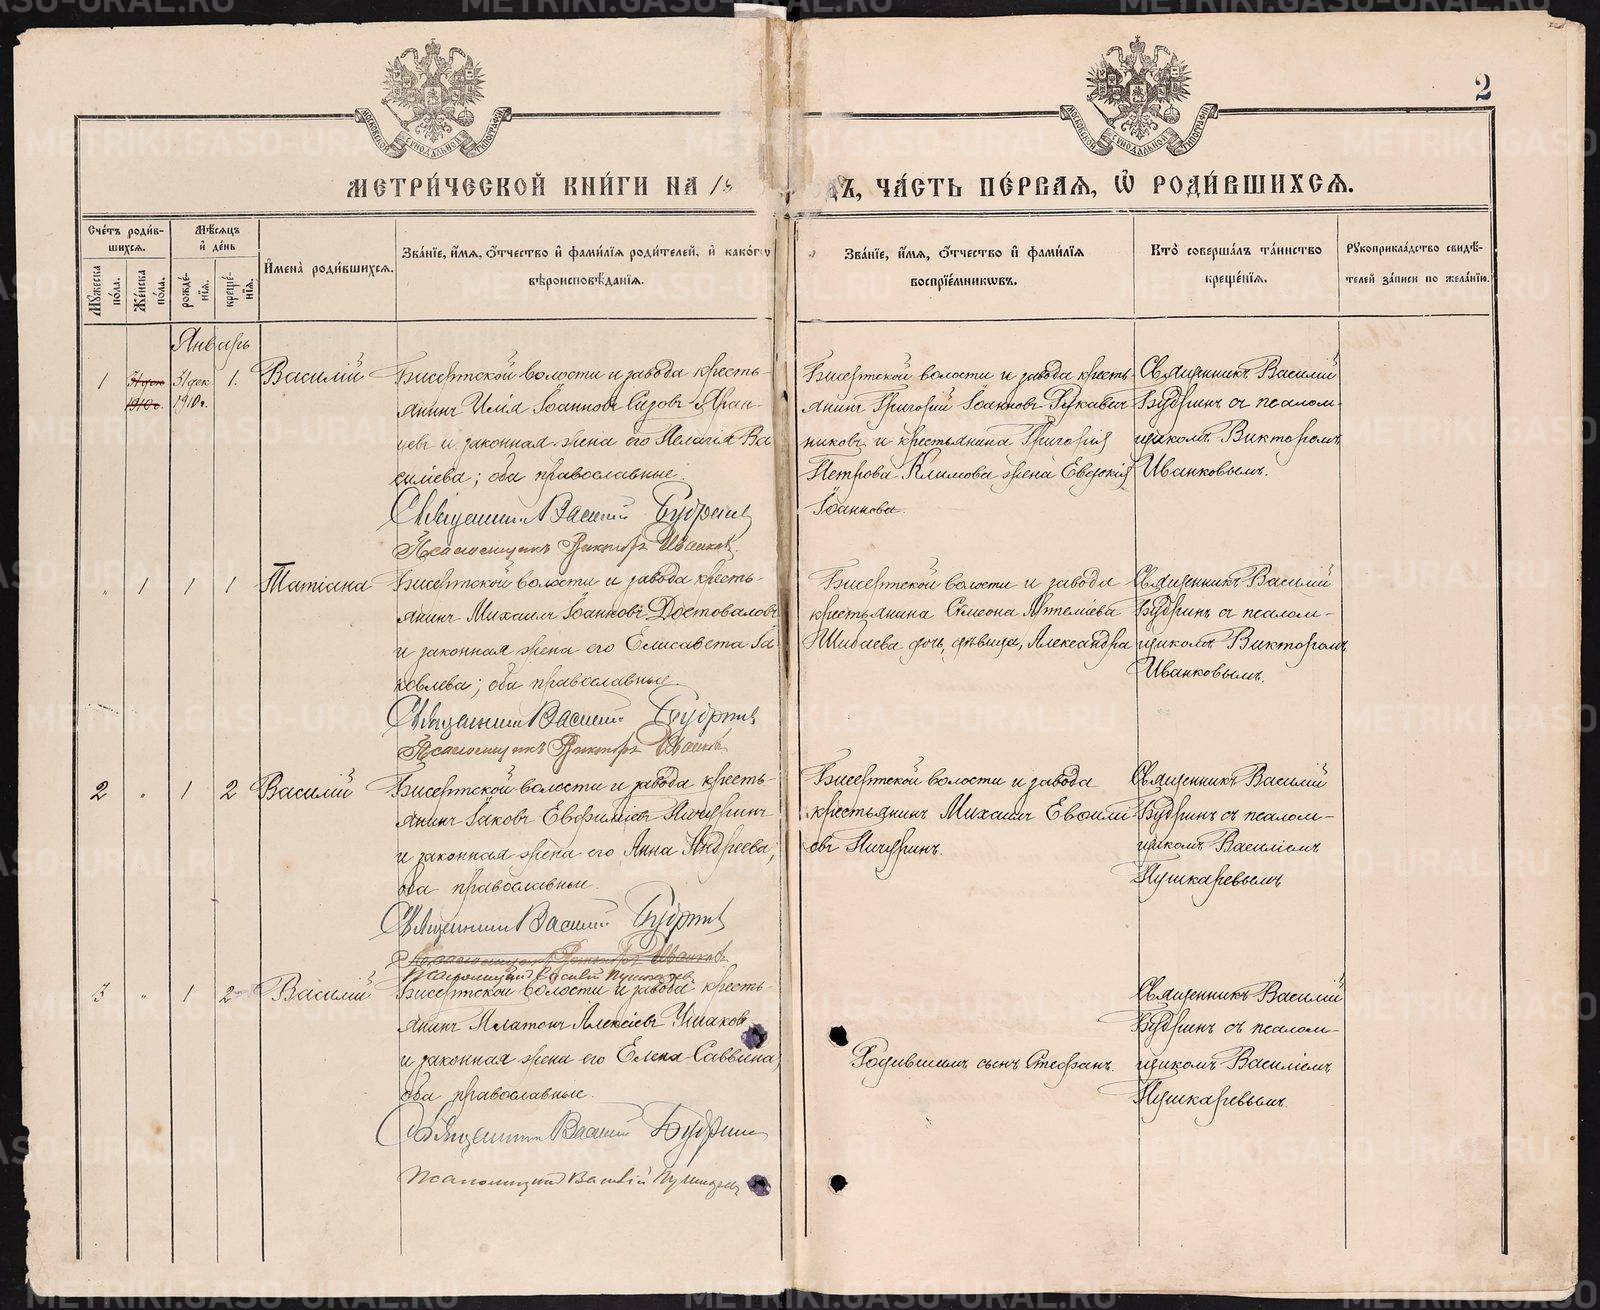 2
МЕТРИ́ЧЕСКОЙ КНИ́ГИ НА 19
ДЪ, ЧА́СТЬ ПЕ́РВАѦ, Ѡ҆ РОДИ́ВШИХСѦ.
Сче́тъ роди́в-
шихсѧ.
Мꙋжеска по́ла.
Же́нска по́ла.
Мѣ́сѧцъ
и҆ де́нь
рожде́-
нїѧ.
креще́-
нїѧ.
И҆мена̀ роди́вшихсѧ.
Зва́нїе, и҆́мѧ, ѻ҆́тчество и҆ фами́лїѧ роди́телей, и҆ како́гѡ
вѣроисповѣ́данїѧ.
Зва́нїе, и҆́мѧ, ѻ҆́тчество и҆ фами́лїѧ
воспрїе́мникѡвъ.
Кто̀ соверша́лъ та́инство
креще́нїѧ.
Рꙋкоприкла́дство свидѣ́-
телей за́писи по жела́нїю.
Январь
1 31 дек. 1910 г. 31 дек. 1910 г. 1. Василій
Бисертской волости и завода кресть-
янинъ Илія Іоанновъ Сизовъ-Яран-
цевъ и законная жена его Пелагія Ва
силіева; оба православные.
Священникъ Василій Будринъ
Псаломщикъ Викторъ Иванковъ.
Бисертской волости и завода кресть
янинъ Григорій Іоанновъ Рукавич
никовъ и крестьянина Григорія
Петрова Климова жена Евдокія
Іоаннова.
Священникъ Василій
Будринъ съ псалом-
щикомъ Викторомъ
Иванковымъ.
" 1 1 1 Татіана
Бисертской волости и завода кресть-
янинъ Михаилъ Іоанновъ Достоваловъ
и законная жена его Елисавета Іа
ковлева; оба православные.
Священникъ Василій Будринъ
Псаломщикъ Викторъ Иванковъ
Бисертской волости и завода
крестьянина Симеона Артеміева
Шибаева дочь, дѣвица, Александра
Священникъ Василій
Будринъ съ псалом-
щикомъ Викторомъ
Иванковымъ.
2 " 1 2 Василій
Бисертской волости и завода кресть-
янинъ Іаковъ Евфиміевъ Ничуринъ
и законная жена его Анна Андреева,
оба православные.
Священникъ Василій Будринъ
Псаломщикъ Викторъ Иванковъ
Псаломщикъ Василій Пушкаревъ
Бисертской волости и завода
крестьянинъ Михаилъ
овъ Ничуринъ.
Священникъ Василій
Будринъ съ псалом-
щикомъ Василіемъ
Пушкаревымъ
3 " 1 2 Василій
Бисертской волости и завода кресть-
янинъ Платонъ Алексіевъ Ушаковъ
и законная жена его Елена Саввина,
оба православные.
Священникъ Василій Будринъ
Псаломщикъ Василій Пушкаревъ
Родившимъ сынъ Стефанъ.
Священникъ Василій
Будринъ съ псалом-
щикомъ Василіемъ
Пушкаревымъ.